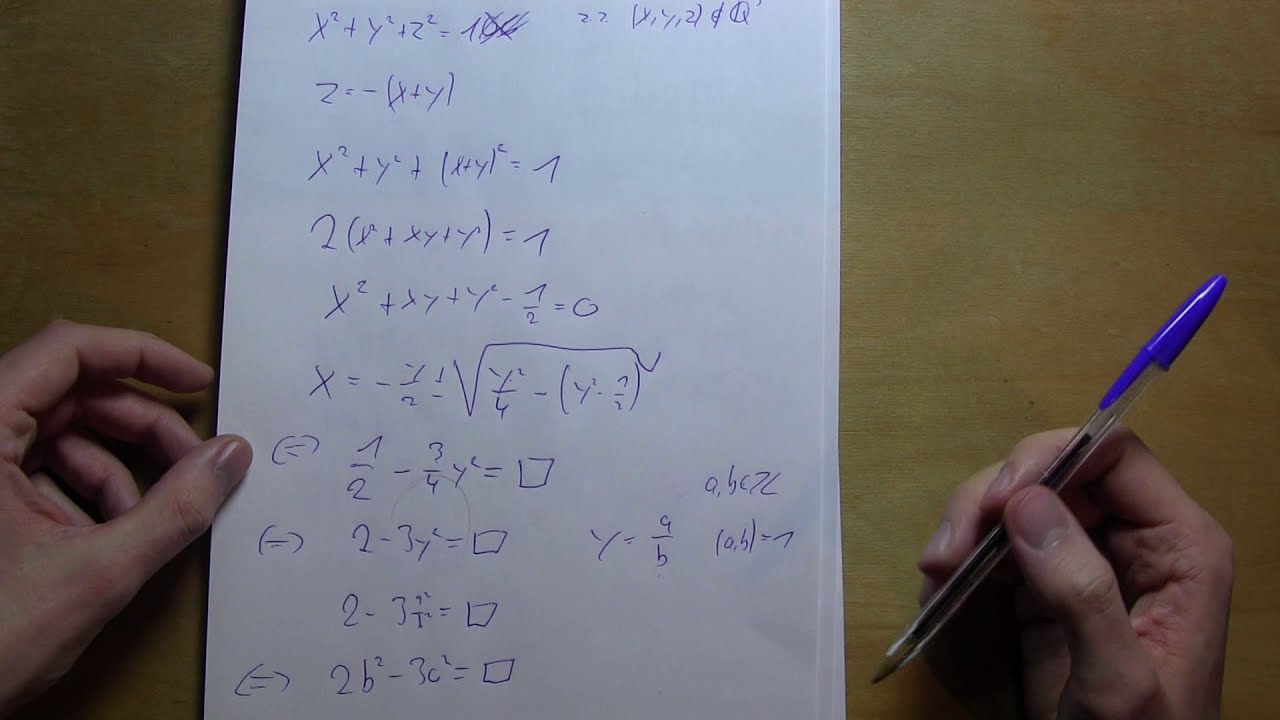 x² + y² + z² = 1 z.z. (x,y,z) ∉ ℚ³
z = -(x+y)
x² + y² + (x+y)² = 1
2(x² + xy + y²) = 1
x² + xy + y² - 1/2 = 0
x = -y/2 ± √(y²/4 - (y² - 1/2))
(=) 1/2 - 3/4 y² = □
a,b∈ℤ
(=) 2 - 3y² = □ y = a/b (a,b)=1
2 - 3 a²/b² = □
(=) 2b² - 3a² = □